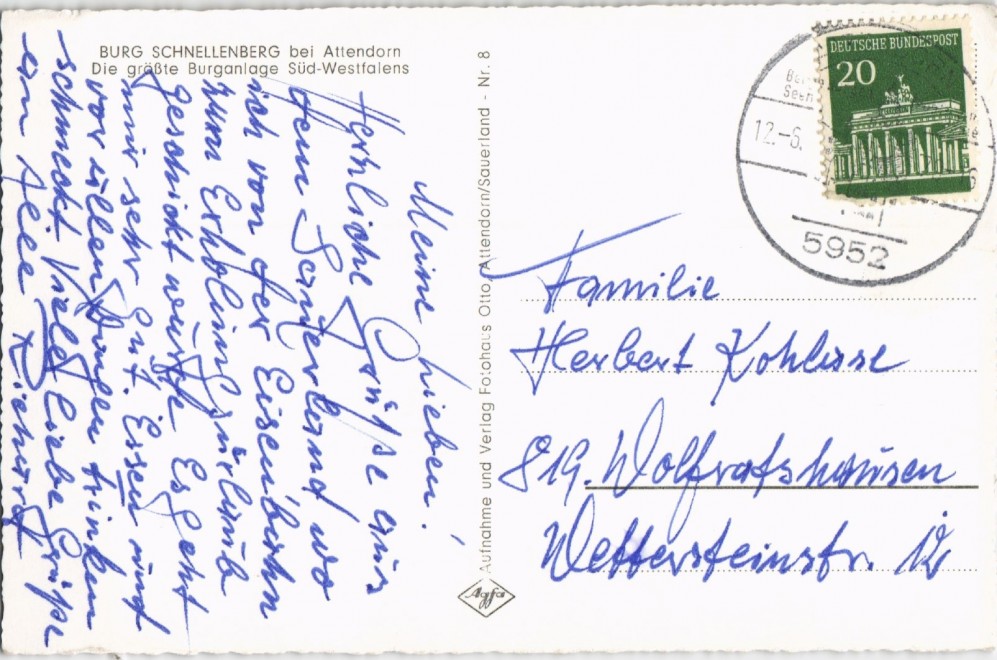 BURG SCHNELLENBERG bei Attendorn
Die größte Burganlage Süd-Westfalens
Meine Lieben!
Herzliche Grüße aus
dem Sauerland wo
ich von der Eisenbahn
zum Erholungsurlaub
geschickt wurde Es geht
mir sehr gut. Essen und
vor allen Dingen trinken
schmeckt Viele liebe Grüße
an Alle Richard
Aufnahme und Verlag Fotohaus Otto, Attendorn/Sauerland - Nr. 8
Agfa
DEUTSCHE BUNDESPOST
20
12.-6.
5952
Familie
Herbert Kohlisse
819. Wolfratshausen
Wettersteinstr.